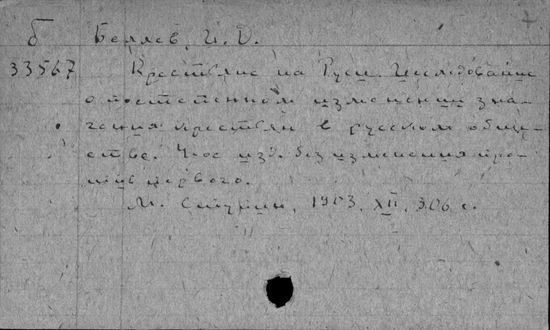 б Беляев, И. Д.
33567 Крестьяне на Руси. Исследование
о постепенном изменении зна-
чения крестьян в русском общес-
тве. 4-ое изд. без изменения про-
тив первого.
М. Ступин, 1903, XII, 306 с.